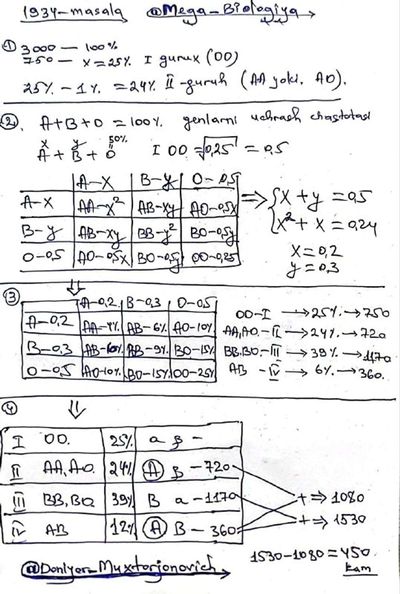 1934-masala @Mega-Biologiya
① 3000 — 100%
750 — x=25% I gurux (OO)
25% - 1% = 24% II-guruh (AA yoki AO).
②. A+B+O=100% genlarni uchrash chastotasi
x y 50%
A + B + O I OO = √0,25 = 0,5
A-x B-y O-0,5
A-x AA-x² AB-xy AO-0,5x
B-y AB-xy BB-y² BO-0,5y
O-0,5 AO-0,5x BO-0,5y OO-0,25
⇒ { x + y = 0,5
x² + x = 0,24
x=0,2
y=0,3
⇓
③ A-0,2 B-0,3 O-0,5
A-0,2 AA-4% AB-6% AO-10%
B-0,3 AB-6% BB-9% BO-15%
O-0,5 AO-10% BO-15% OO-25%
OO-I → 25% → 750
AA,AO.-II → 24% → 720
BB.BO.-III → 39% → 1170
AB -IV → 6% → 360.
④ ⇓
I OO. 25% a β -
II AA,AO. 24% A β - 720
III BB,BO 39% B a - 1170
IV AB 12% A B - 360
+ ⇒ 1080
+ ⇒ 1530
1530-1080 = 450
kam
@Doniyor_Muxtorjonovich